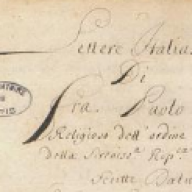 Lettere Italia
Di
Fra. Paolo
Religioso dell'ordine
della Sereniss.a Rep.ca
Scritte